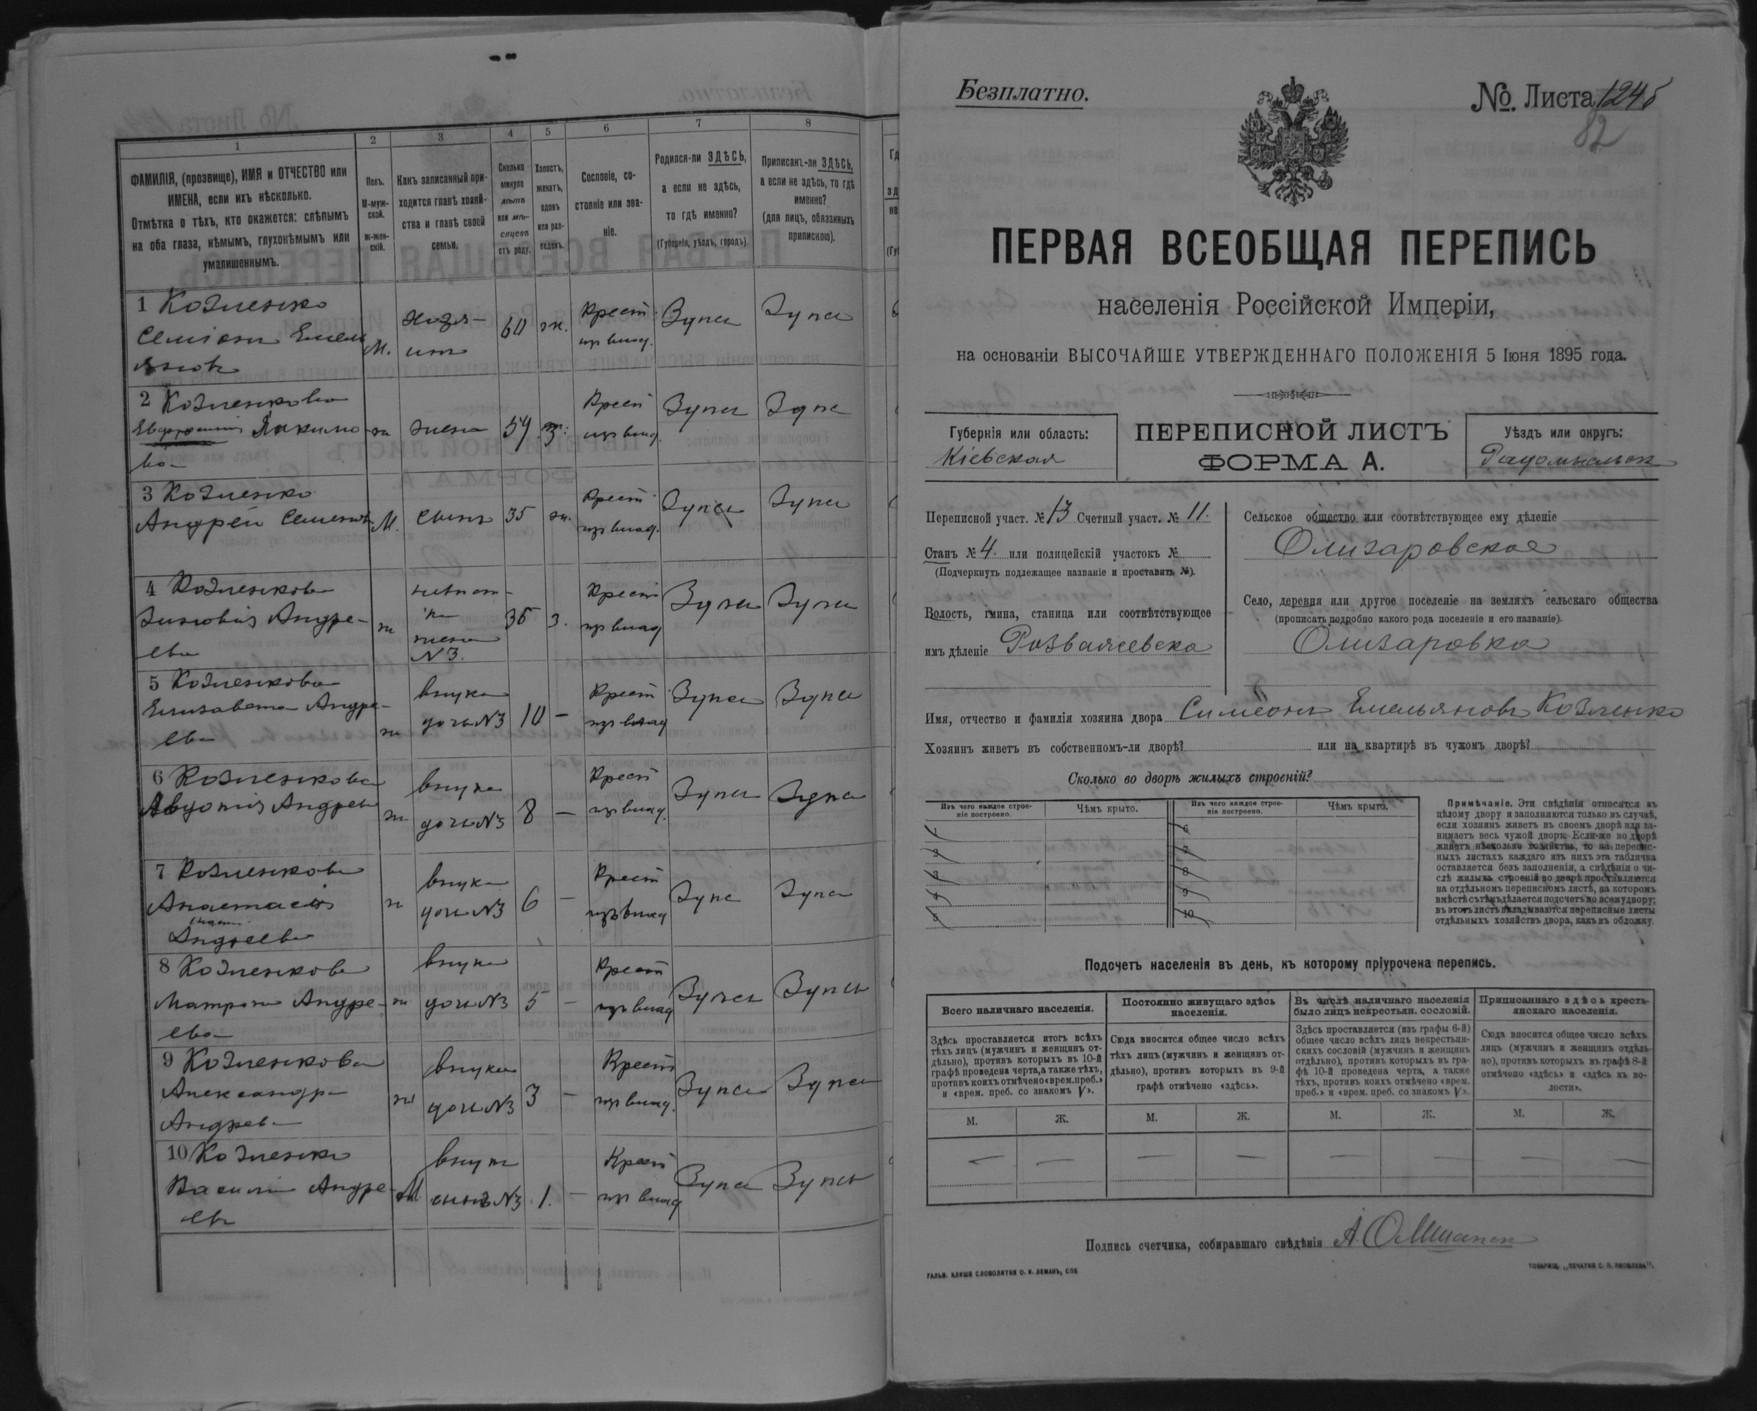 1
2
3
4
5
6
7
8
ФАМИЛІЯ, (прозвище), ИМЯ и ОТЧЕСТВО или
ИМЕНА, если ихъ нѣсколько.
Отмѣтка о тѣхъ, кто окажется: слѣпымъ
на оба глаза, нѣмымъ, глухонѣмымъ или
умалишеннымъ.
Полъ.
М-муж-
ской.
Ж-жен-
скій.
Какъ записанный при-
ходится главѣ хозяй-
ства и главѣ своей
семьи.
Сколько
минуло
лѣтъ
или мѣ-
сяцевъ
отъ роду.
Холостъ,
женатъ,
вдовъ
или раз-
веденъ.
Сословіе, со-
стояніе или зва-
ніе.
Родился-ли ЗДѢСЬ,
а если не здѣсь,
то гдѣ именно?
(Губернія, уѣздъ, городъ).
Приписанъ-ли ЗДѢСЬ,
а если не здѣсь, то гдѣ
именно?
(для лицъ, обязанныхъ
припискою).
1 Козленко
Семіонъ Емель
яновъ
М.
хозя-
инъ
60
ж.
Крест.
изъ влад.
Здѣсь
Здѣсь
2 Козленкова
Евфросинія Якимо
ва
ж
жена
з.
Крест
изъ влад.
Здѣсь
Здѣсь
3 Козленко
Андрей Семеновъ
М.
сынъ
35
ж.
Крест
изъ влад.
Здѣсь
Здѣсь
4 Козленкова
Зиновія Андре-
ева
ж
невѣст-
ка
жена
№3.
з.
Крест
изъ влад
Здѣсь
Здѣсь
5 Козленкова
Елизавета Андре-
ева
ж
внука
дочь №3
10
—
Крест
изъ влад
Здѣсь
Здѣсь
6 Козленкова
Авдотія Андреева
ж
внука
дочь №3
8
—
Крест
изъ влад.
Здѣсь
Здѣсь
7 Козленкова
Анастасія
Андреева
ж
внука
дочь №3
6
—
Крест
изъ влад
Здѣсь
Здѣсь
8 Козленкова
Матрона Андре-
ева
ж
внука
дочь №3
5
—
Крест
изъ влад
Здѣсь
Здѣсь
9 Козленкова
Александра
Андреева
ж
внука
дочь №3
3
—
Крест
изъ влад.
Здѣсь
Здѣсь
10 Козленко
Василій Андре-
евъ
М
внукъ
сынъ №3
1.
—
Крест
изъ влад
Здѣсь
Здѣсь
Безплатно.
№ Листа
82
ПЕРВАЯ ВСЕОБЩАЯ ПЕРЕПИСЬ
населенія Россійской Имперіи,
на основаніи ВЫСОЧАЙШЕ УТВЕРЖДЕННАГО ПОЛОЖЕНІЯ 5 Іюня 1895 года.
Губернія или область:
Кіевская
ПЕРЕПИСНОЙ ЛИСТЪ
ФОРМА А.
Уѣздъ или округъ:
Радомысльск
Переписной участ. № 13 Счетный участ. № 11.
Станъ № 4. или полицейскій участокъ №
(Подчеркнуть подлежащее названіе и проставить №).
Волость, гмина, станица или соотвѣтствующее
имъ дѣленіе Розважевска
Сельское общество или соотвѣтствующее ему дѣленіе
Олизаровское
Село, деревня или другое поселеніе на земляхъ сельскаго общества
(прописать подробно какого рода поселеніе и его названіе).
Олизаровка
Имя, отчество и фамилія хозяина двора Симеонъ Емельяновъ Козленко
Хозяинъ живетъ въ собственномъ-ли дворѣ? или на квартирѣ въ чужомъ дворѣ?
Сколько во дворѣ жилыхъ строеній?
Изъ чего каждое строе-
ніе построено.
Чѣмъ крыто.
Изъ чего каждое строе-
ніе построено.
Чѣмъ крыто.
1
2
3
4
5
6
7
8
9
10
Примѣчаніе. Эти свѣдѣнія относятся къ
цѣлому двору и заполняются только въ случаѣ,
если хозяинъ живетъ въ своемъ дворѣ или за-
нимаетъ весь чужой дворъ. Если-же во дворѣ
живетъ нѣсколько хозяйствъ, то на перепис-
ныхъ листахъ каждаго изъ нихъ эта табличка
оставляется безъ заполненія, а свѣдѣнія о чи-
слѣ жилыхъ строеній во дворѣ проставляются
на отдѣльномъ переписномъ листѣ, на которомъ
вмѣстѣ съ тѣмъ дѣлается подсчетъ по всему двору;
въ этотъ листъ вкладываются переписные листы
отдѣльныхъ хозяйствъ двора, какъ въ обложку.
Подсчетъ населенія въ день, къ которому пріурочена перепись.
Всего наличнаго населенія.
Здѣсь проставляется итогъ всѣхъ
тѣхъ лицъ (мужчинъ и женщинъ от-
дѣльно), противъ которыхъ въ 10-й
графѣ проведена черта, а также тѣхъ,
противъ коихъ отмѣчено «врем. преб.»
и «врем. преб. со знакомъ V».
Постоянно живущаго здѣсь
населенія.
Сюда вносится общее число всѣхъ
тѣхъ лицъ (мужчинъ и женщинъ от-
дѣльно), противъ которыхъ въ 9-й
графѣ отмѣчено «здѣсь».
Въ числѣ наличнаго населенія
было лицъ некрестьян. сословій.
Здѣсь проставляется (изъ графы 6-й)
общее число всѣхъ лицъ некрестьян-
скихъ сословій (мужчинъ и женщинъ
отдѣльно), противъ которыхъ въ гра-
фѣ 10-й проведена черта, а также
тѣхъ, противъ коихъ отмѣчено «врем.
преб.» и «врем. преб. со знакомъ V».
Приписаннаго здѣсь кресть-
янскаго населенія.
Сюда вносится общее число всѣхъ
лицъ (мужчинъ и женщинъ отдѣль-
но), противъ которыхъ въ графѣ 8-й
отмѣчено «здѣсь» и «здѣсь въ во-
лости».
М.
Ж.
М.
Ж.
М.
Ж.
М.
Ж.
— — — — — — — —
Подпись счетчика, собиравшаго свѣдѣнія
ГАЛЬВ. КЛИШЕ СЛОВОЛИТНИ О. И. ЛЕМАНЪ, СПБ
ТОВАРИЩ. „ПЕЧАТНЯ С. П. ЯКОВЛЕВА“.